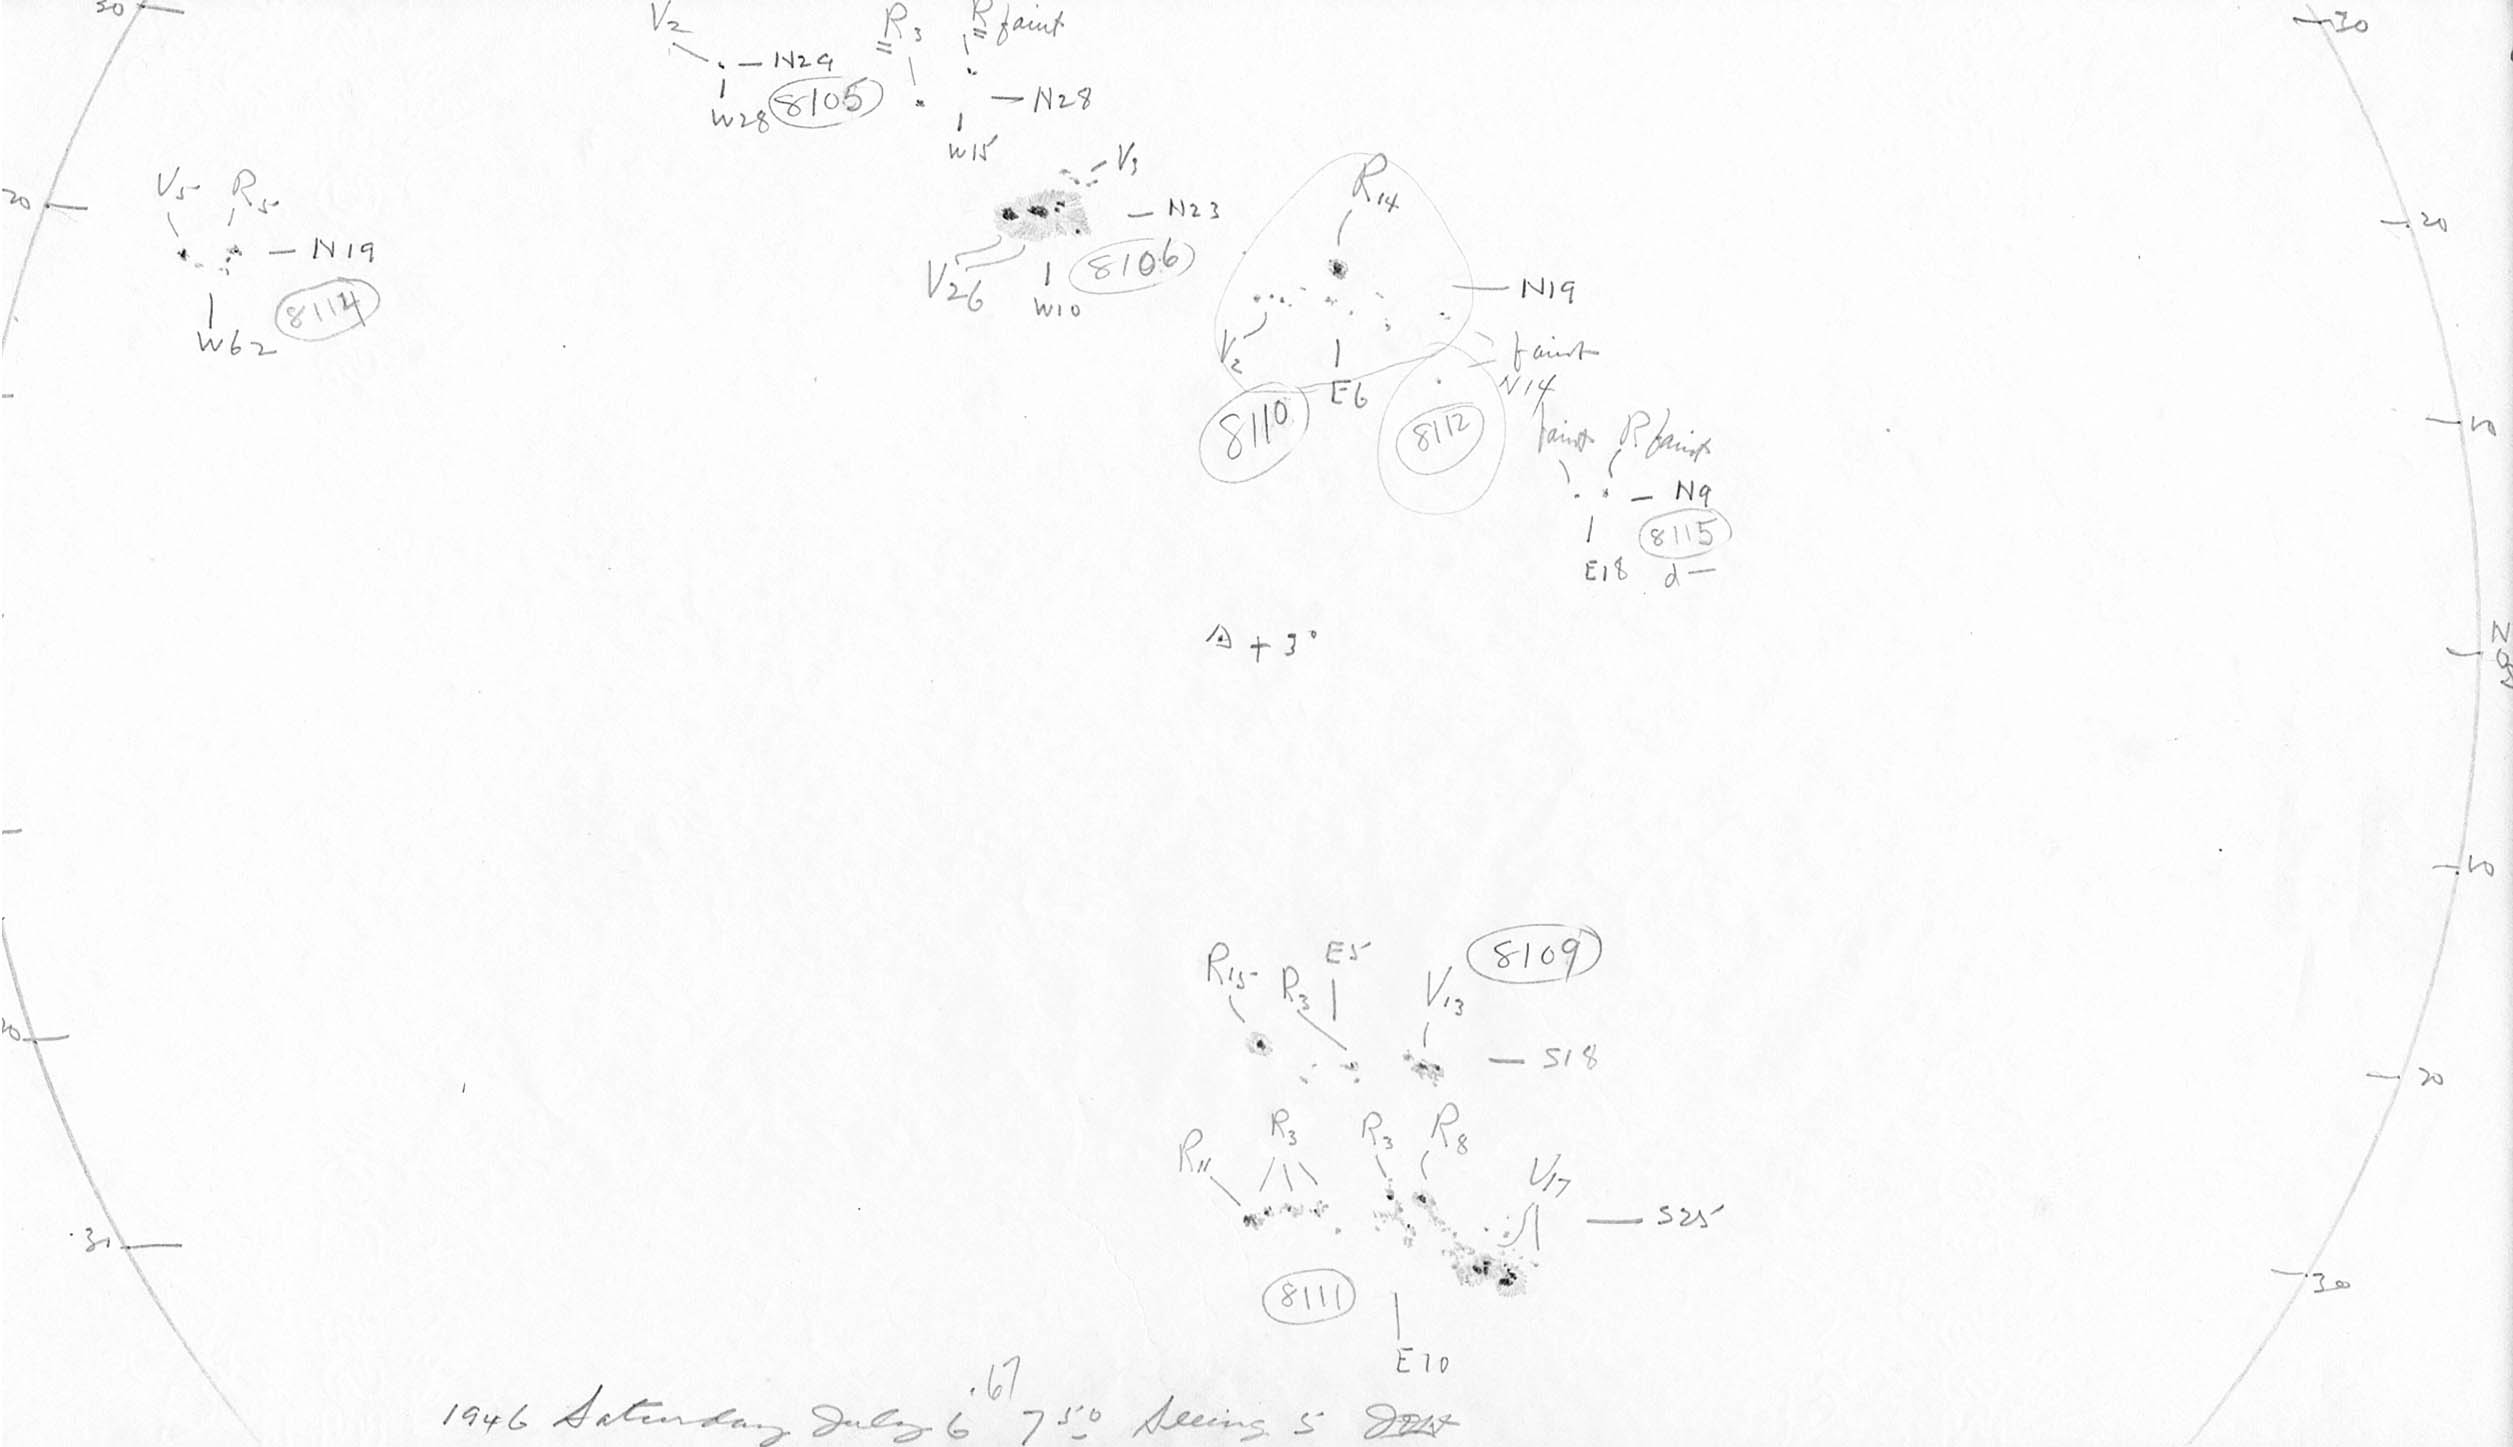 30
V2
R3
R faint
30
N29
W28
8105
N28
W15
V3
V5
R5
20
N23
R14
20
N19
8106
V26
W10
N19
8114
W62
V2
faint
E6
N14
8110
8112
10
faint
R faint
N9
8115
E18
d —
+ 3°
N
10
8109
E5
R15
R3
V13
S18
20
20
R3
R3
R8
R11
V17
S25
30
30
8111
E10
.67
1946 Saturday July 6 7 50 Seeing 5